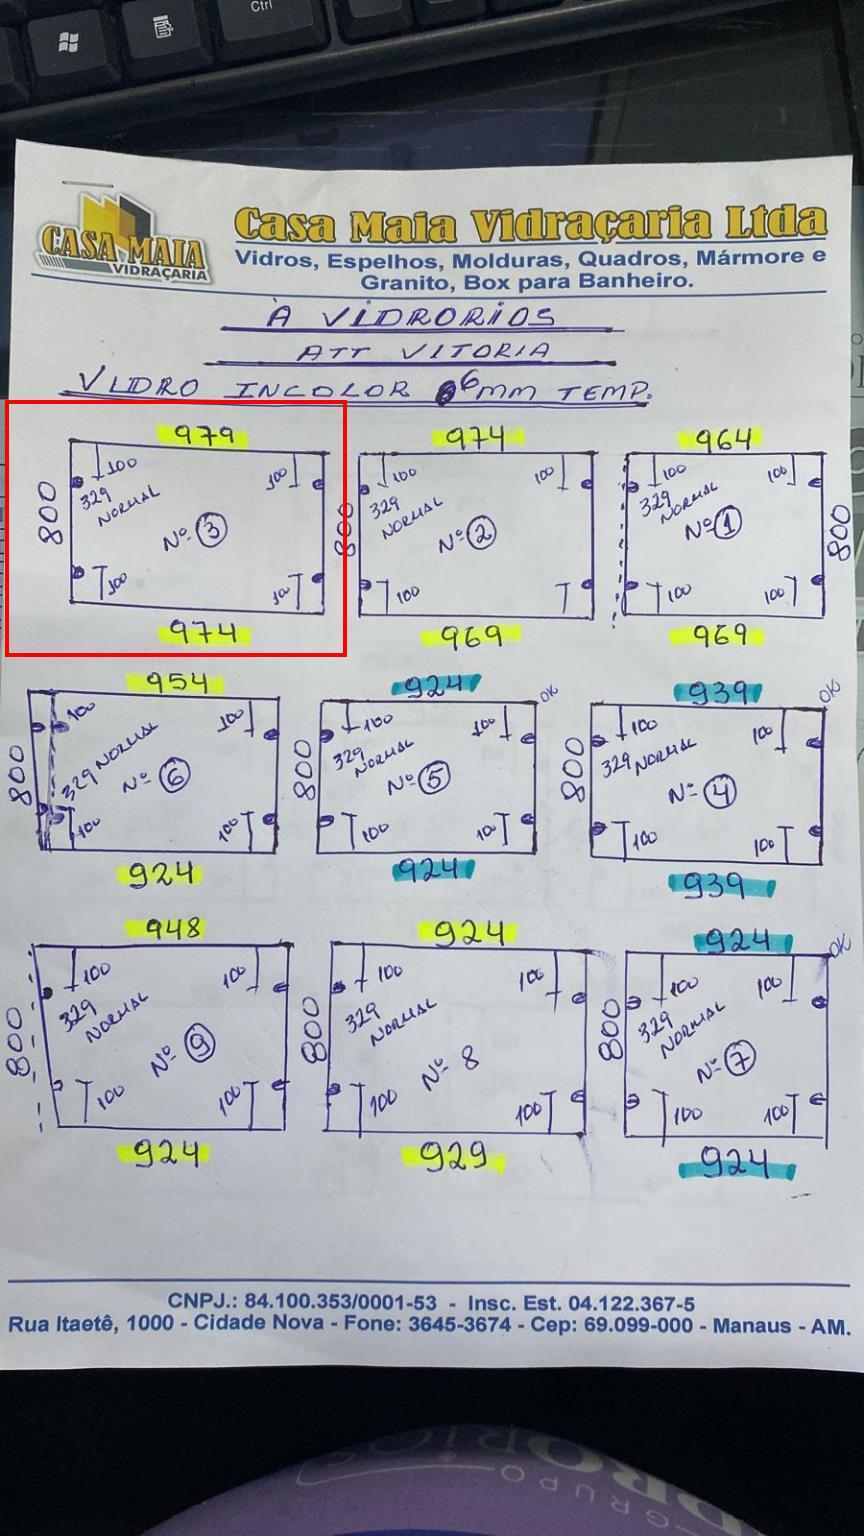 Ctrl
CASA MAIA
VIDRAÇARIA
Casa Maia Vidraçaria Ltda
Vidros, Espelhos, Molduras, Quadros, Mármore e
Granito, Box para Banheiro.
À VIDRORIOS
ATT VITORIA
VIDRO INCOLOR 6MM TEMP.
979
800
100
100
329
NORMAL
Nº 3
100
100
974
974
800
100
100
329
NORMAL
Nº 2
100
969
964
100
100
329
NORMAL
Nº 1
800
100
100
969
954
800
100
100
329 NORMAL
Nº 6
100
100
924
924
OK
800
100
100
329
NORMAL
Nº 5
100
100
924
939
OK
800
100
100
329 NORMAL
Nº 4
100
100
939
948
800
100
100
329
NORMAL
Nº 9
100
100
924
924
800
100
100
329
NORMAL
Nº 8
100
100
929
924
OK
800
100
100
329
NORMAL
Nº 7
100
100
924
CNPJ.: 84.100.353/0001-53 - Insc. Est. 04.122.367-5
Rua Itaetê, 1000 - Cidade Nova - Fone: 3645-3674 - Cep: 69.099-000 - Manaus - AM.
GRUPO